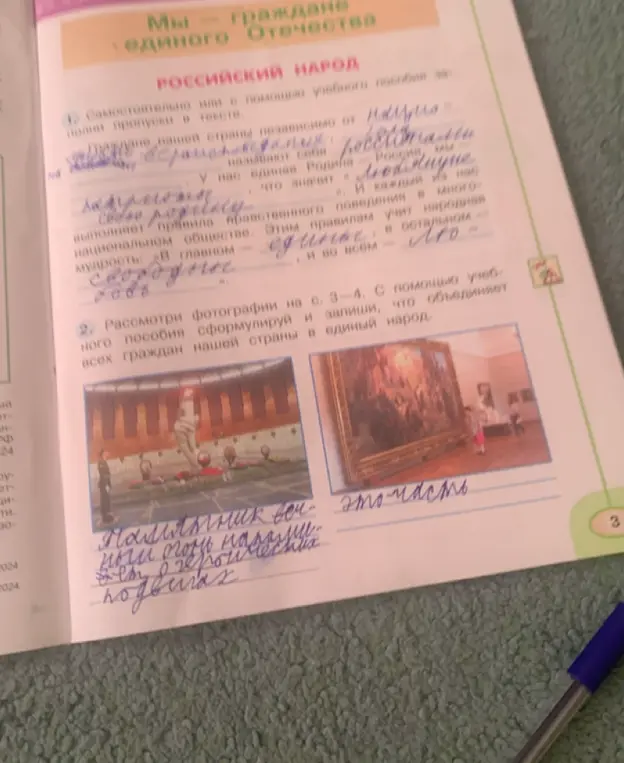 Мы — граждане
единого Отечества
РОССИЙСКИЙ НАРОД
1. Самостоятельно или с помощью учебного пособия за-
полни пропуски в тексте.
Граждане нашей страны независимо от нацио-
вероисповедания,
называют себя россиянами
. У нас единая Родина — Россия, мы —
патриоты, что значит « любящие
свою родину ». И каждый из нас
выполняет правила нравственного поведения в много-
национальном обществе. Этим правилам учит народная
мудрость: «В главном — единые, в остальном —
свободные, и во всём — лю-
бовь ».
2. Рассмотри фотографии на с. 3—4. С помощью учеб-
ного пособия сформулируй и запиши, что объединяет
всех граждан нашей страны в единый народ.
Памятник веч-
ный огонь напоми-
о героических
подвигах
это часть
3
24
2024
2024